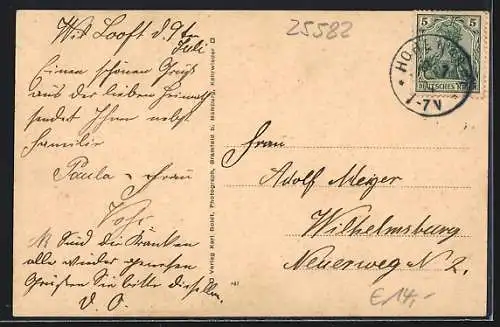 25582
Looft d. 9ten
Juli
Einen schönen Gruß
aus der lieben Heimath
sendet Ihnen nebst
Familie
Paula
Frau
N. Sind die Kranken
alle wieder genesen
Grüßen Sie bitte dieselben
d. O.
Verlag Karl Boldt, Photograph, Bramfeld b. Hamburg,
5 5
DEUTSCHES REICH
HOHE
7-7V
Frau
Adolf Meyer
Wilhelmsburg
Neuerweg N 2.
€ 14,-